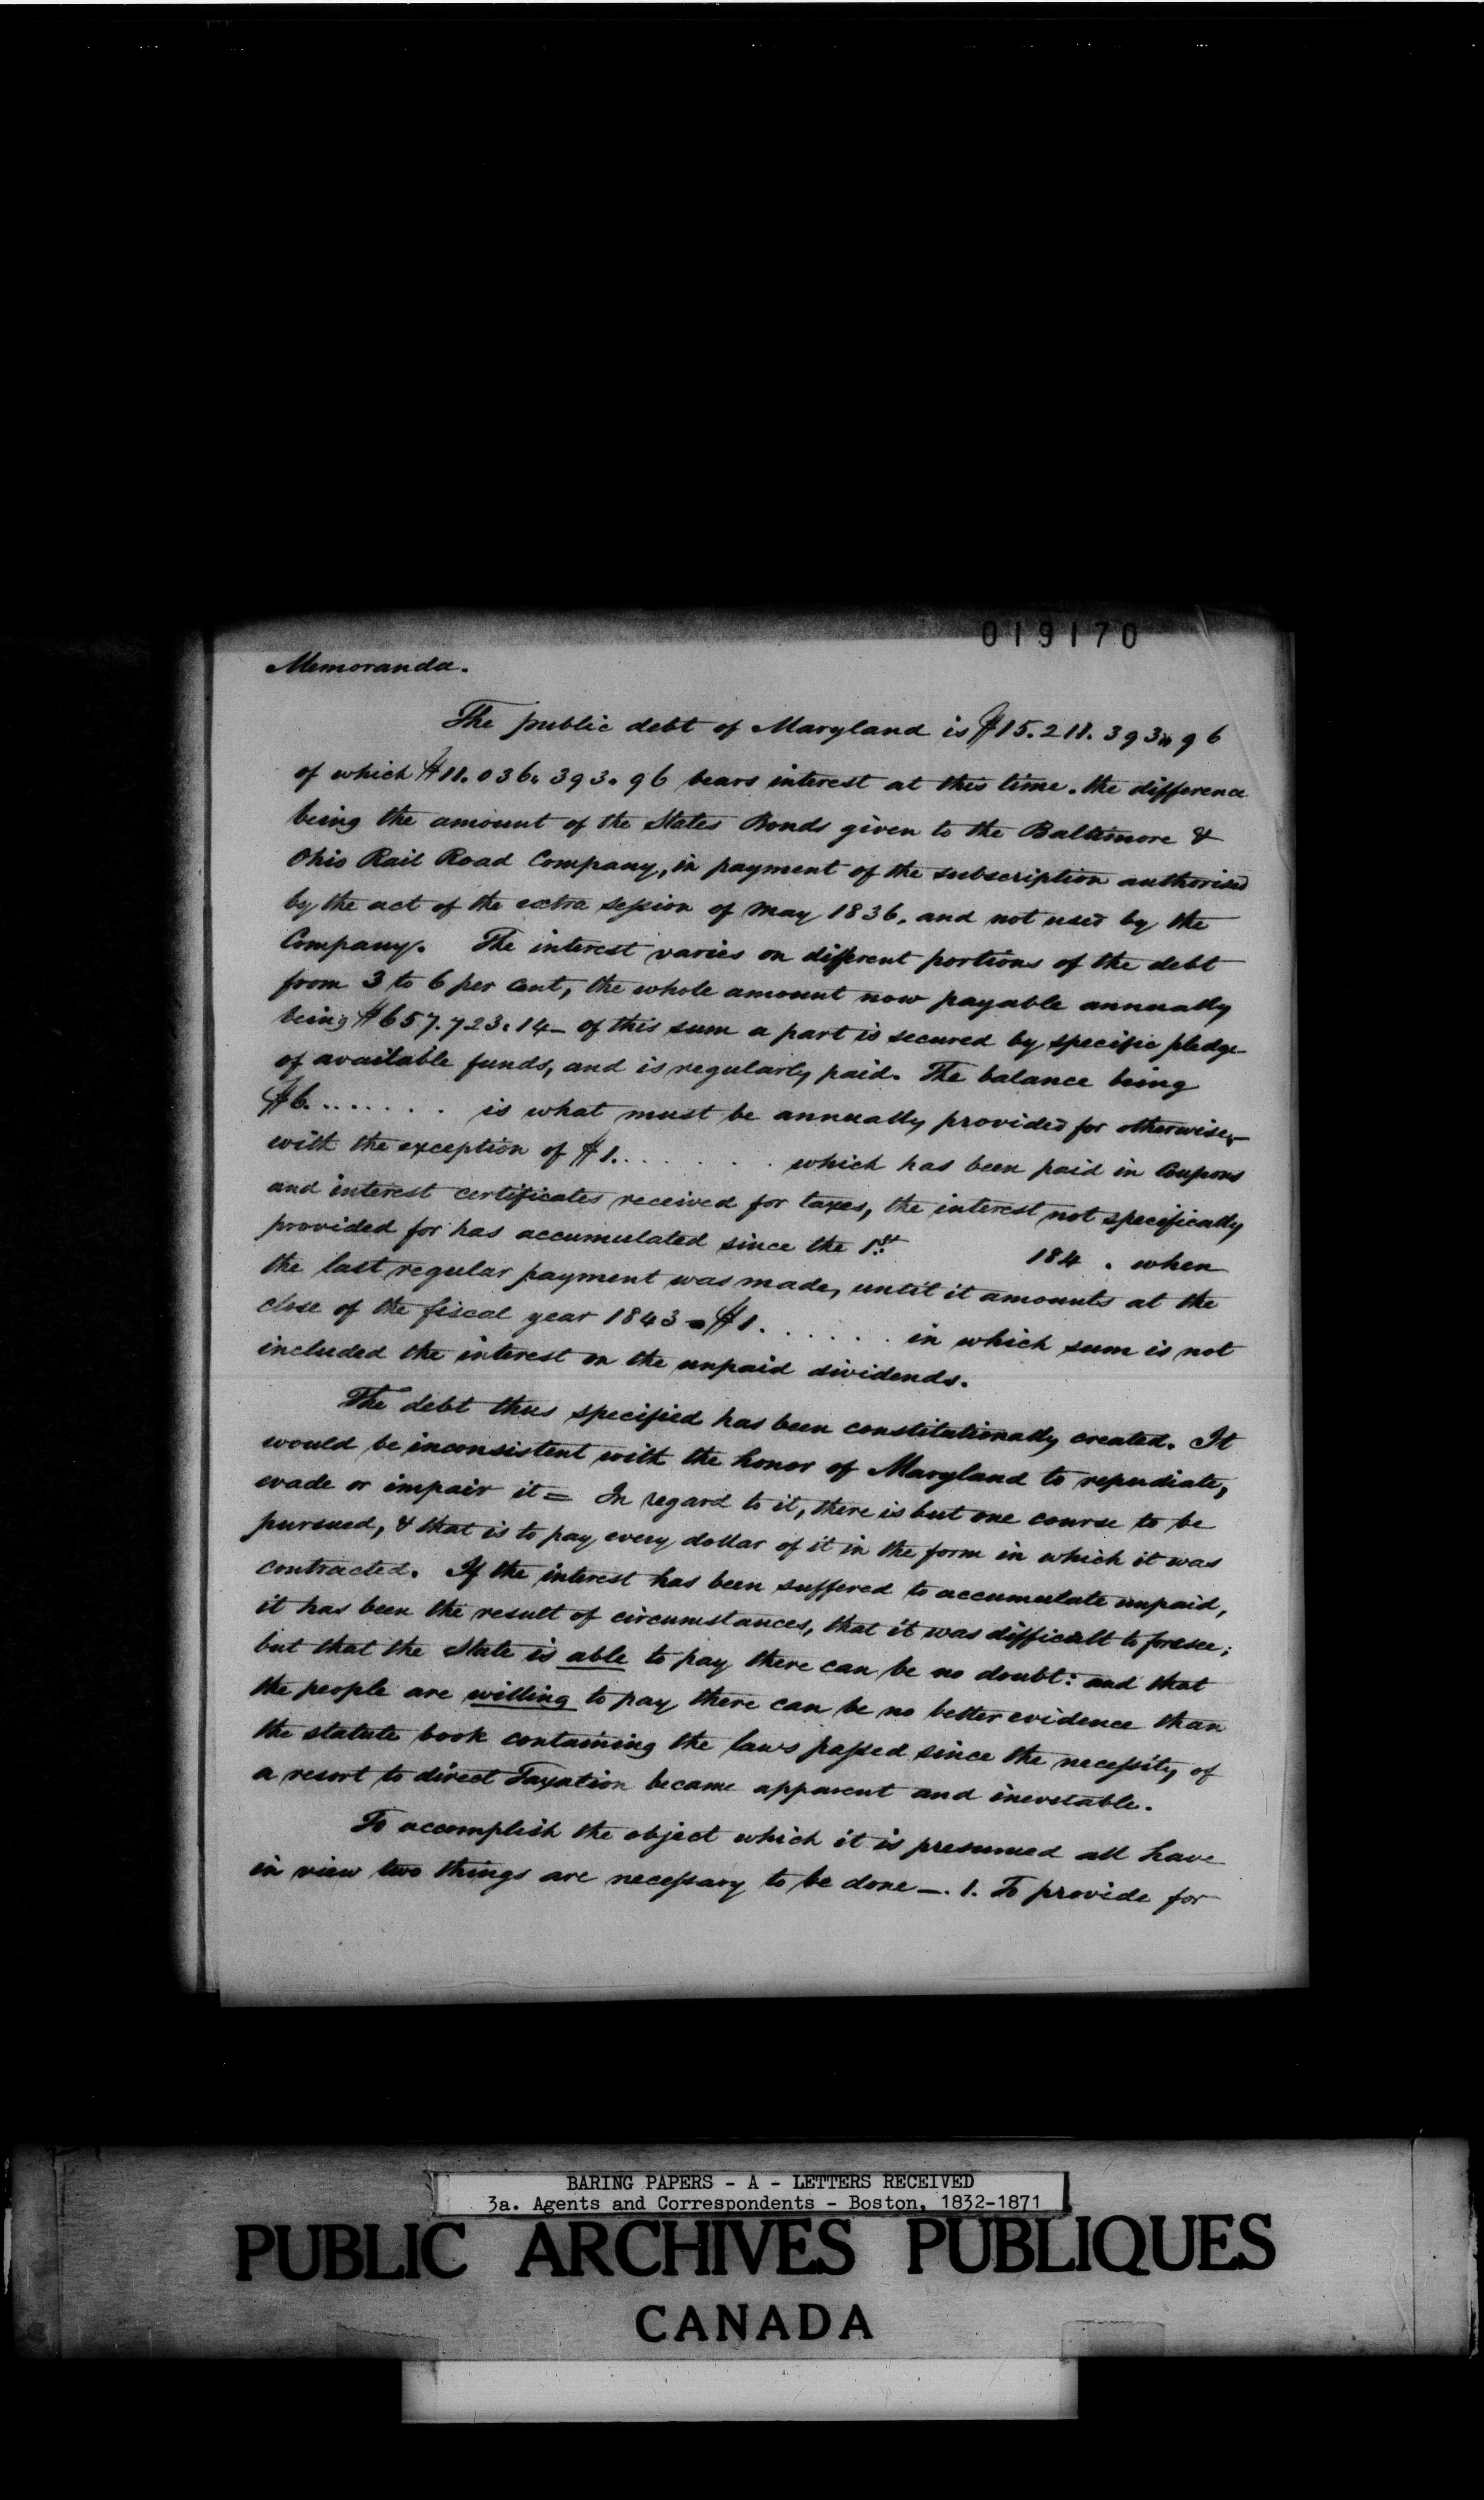 019170
Memoranda.
The public debt of Maryland is $15.211.393.96
of which $11.036.393.96 bears interest at this time. the difference
being the amount of the States Bonds given to the Baltimore &
Ohio Rail Road Company, in payment of the subscription authorised
by the act of the extra session of May 1836, and not used by the
Company. The interest varies on different portions of the debt
from 3 to 6 per cent, the whole amount now payable annually
being $657.723.14 - of this sum a part is secured by specific pledge
of available funds, and is regularly paid. The balance being
$6........ is what must be annually provided for otherwise,
with the exception of $1........ which has been paid in Coupons
and interest certificates received for taxes, the interest not specifically
provided for has accumulated since the 1st 184 . when
the last regular payment was made, until it amounts at the
close of the fiscal year 1843 = $1....... in which sum is not
included the interest on the unpaid dividends.
The debt thus specified has been constitutionally created. It
would be inconsistent with the honor of Maryland to repudiate,
evade or impair it = In regard to it, there is but one course to be
pursued, & that is to pay every dollar of it in the form in which it was
contracted. If the interest has been suffered to accumulate unpaid,
it has been the result of circumstances, that it was difficult to foresee;
but that the State is able to pay there can be no doubt: and that
the people are willing to pay there can be no better evidence than
the statute book containing the laws passed since the necessity of
a resort to direct Taxation became apparent and inevetable.
To accomplish the object which it is presumed all have
in view two things are necessary to be done —. 1. To provide for
BARING PAPERS - A - LETTERS RECEIVED
3a. Agents and Correspondents - Boston, 1832-1871
PUBLIC ARCHIVES PUBLIQUES
CANADA